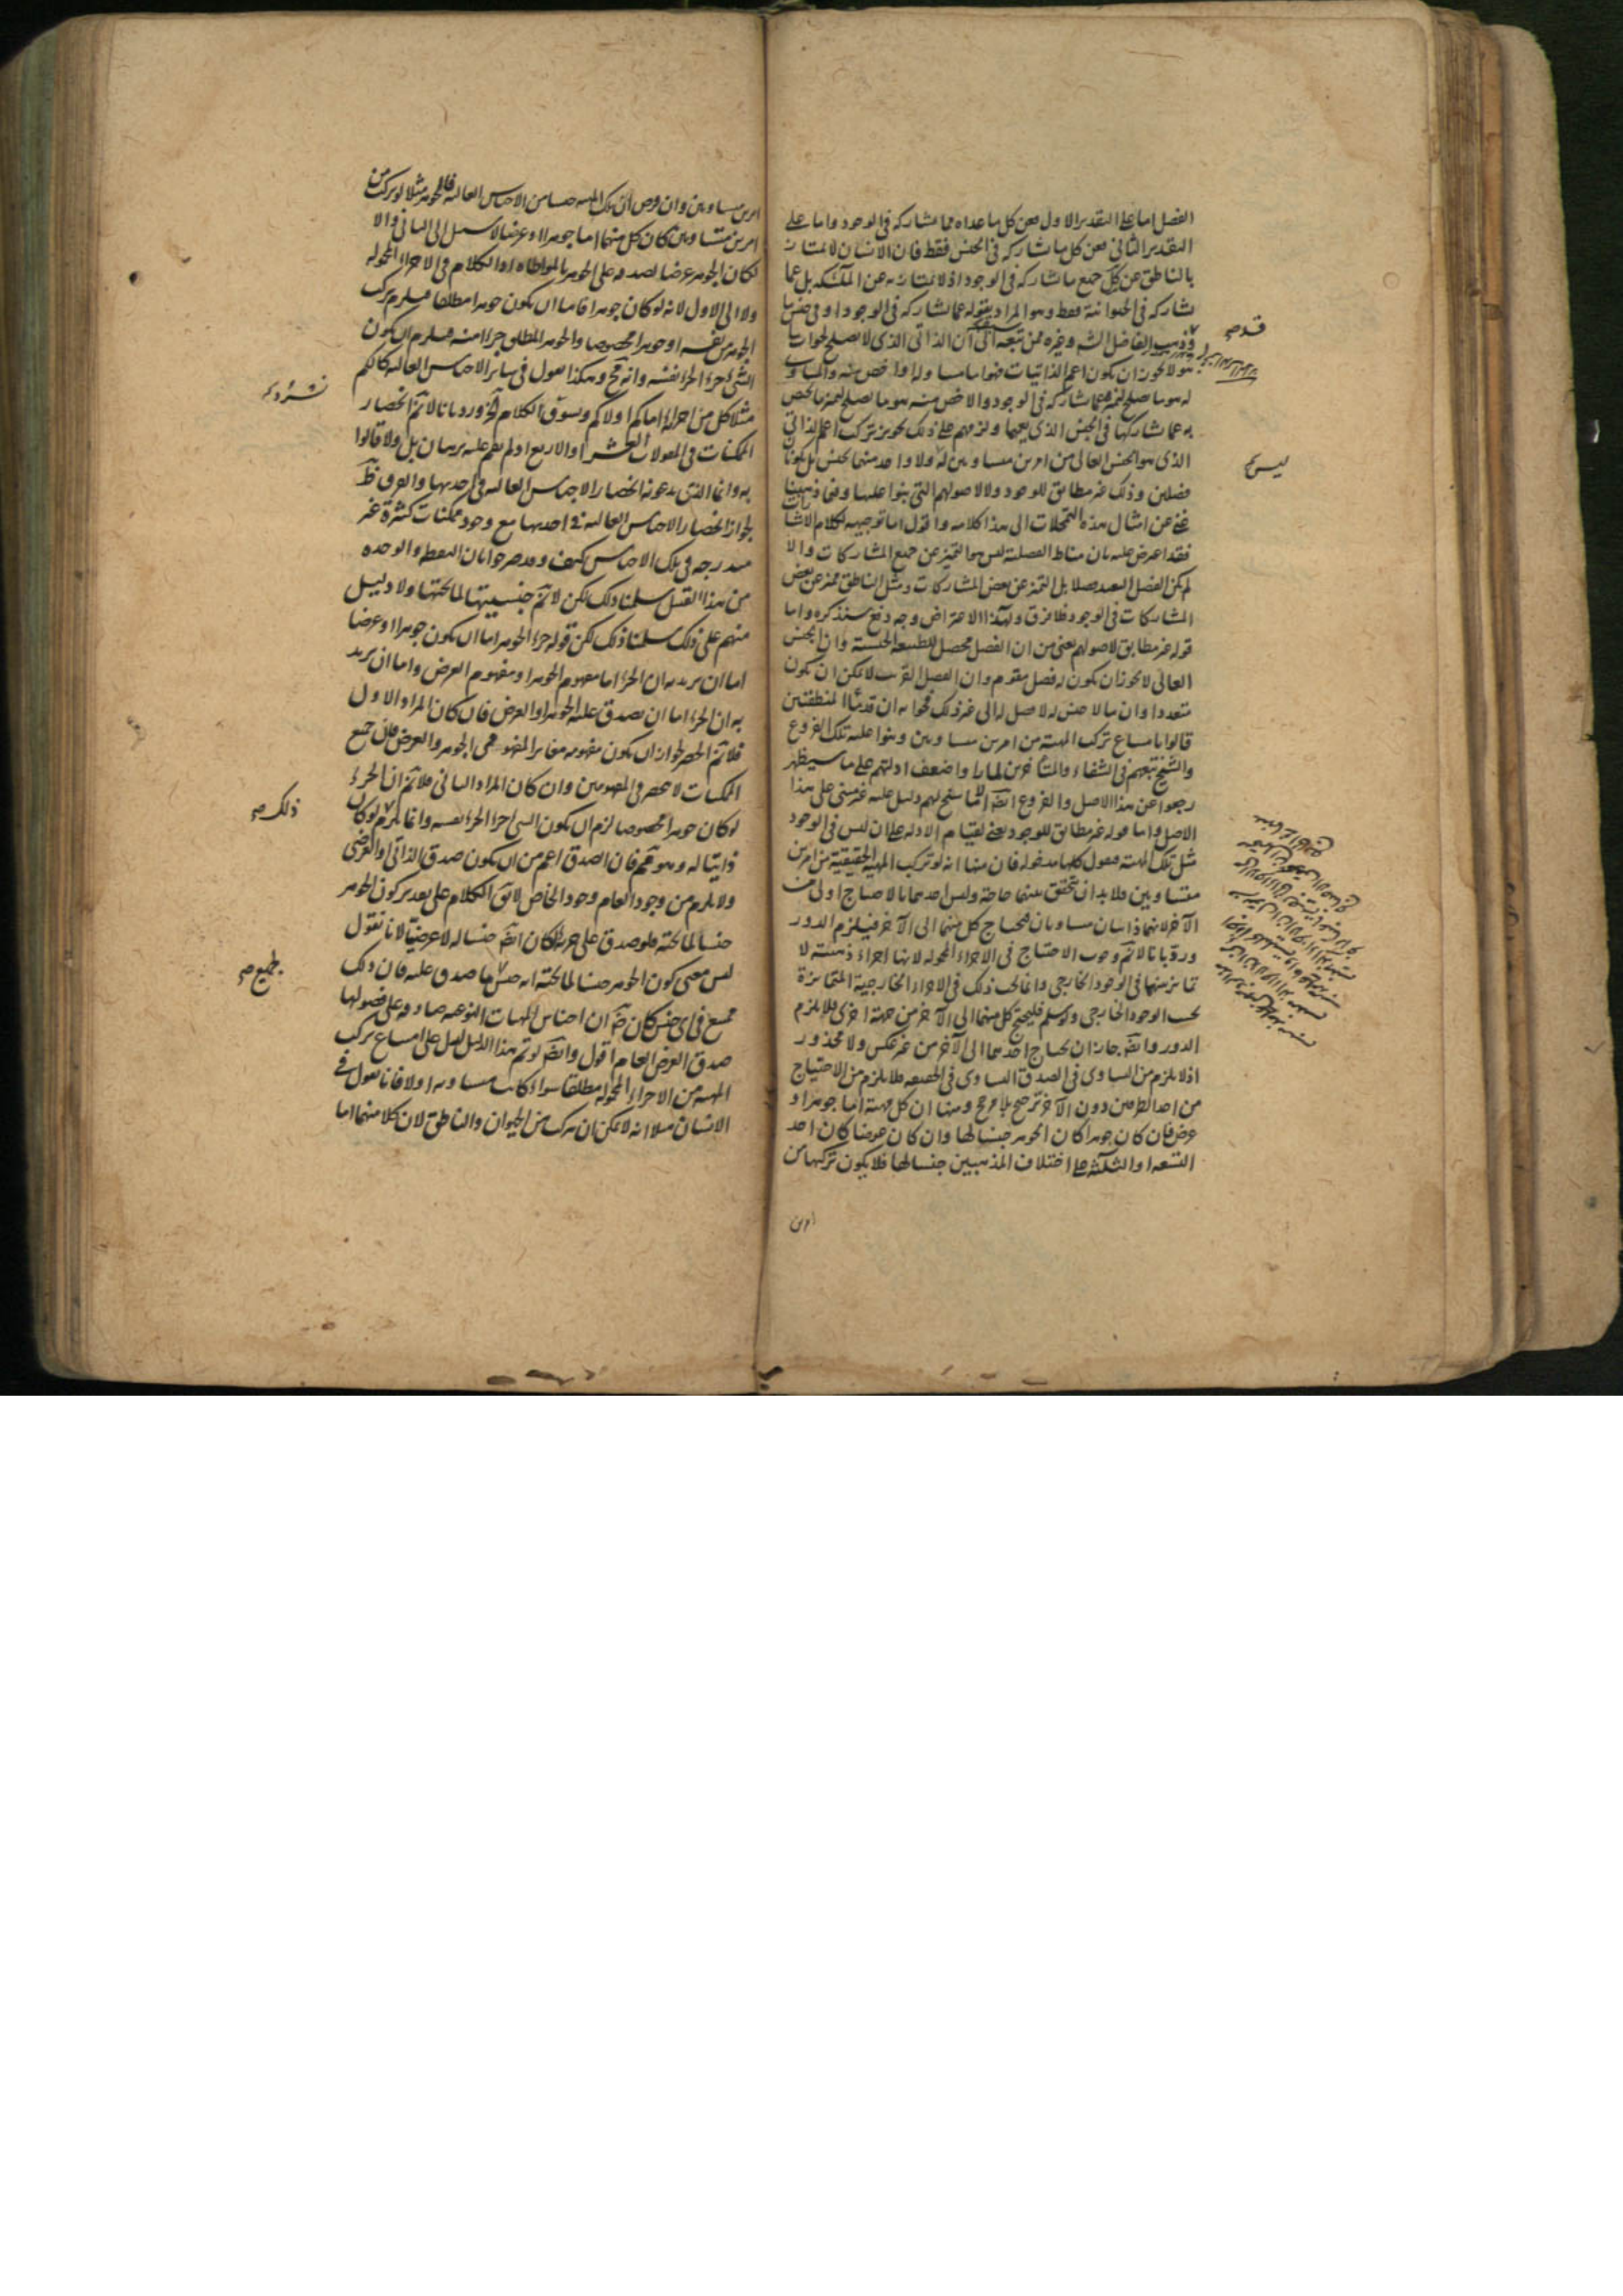 الفصل اما على التقدير الاول فعن كل ما عداه مما يشاركه فى الوجود واما على
التقدير الثانى فعن كل ما يشاركه فى الجنس فقط فان الانسان لا يمتاز
بالناطق عن كل جميع ما يشاركه فى الوجود اذ لا يمتاز به عن الملئكه بل عما
يشاركه فى الحيوانية فقط وهو المراد بقوله عما يشاركه فى الوجود او فى جنس ما
وذهب الفاضل الشه وغيره ممن تبعه الى ان الذاتى الذى لا يصلح لجواب ما
هو لا يجوز ان يكون اعم الذاتيات فهو اما مساو له او اخص منه والمساوى
له هو ما يصلح لتميزه عما يشاركه فى الوجود والاخص منه هو ما يصلح لتميز ما يختص
به عما يشاركها فى الجنس الذى يعمها ولزمهم على ذلك تجويز تركب اعم الذاتى
الذى هو الجنس العالى من امرين مساويين له ولا واحد منهما بجنس بل يكونان
فصلين وذلك غير مطابق للوجود ولا لاصولهم التى بنوا عليها وفيما ذهبنا
غنى عن امثال هذه التمحلات الى هذا كلامه واقول اما توجيهه لكلام الاشارات
فقد اعترض عليه بان مناط الفصلية ليس هو التميز عن جميع المشاركات والا
لم يكن الفصل البعيد فصلا بل التميز عن بعض المشاركات ومثل الناطق مميز عن بعض
المشاركات فى الوجود فلا فرق ولهذا الاعتراض وجه دفع سنذكره واما
قوله غير مطابق لاصولهم يعنى من ان الفصل محصل للطبيعة الجنسية وان الجنس
العالى لا يجوز ان يكون له فصل مقوم وان الفصل القريب لا يمكن ان يكون
متعددا وان ما لا جنس له لا فصل له الى غير ذلك فجوابه ان قدماء المنطقيين
قالوا بامتناع تركب المهية من امرين مساويين وبنوا عليه تلك الفروع
والشيخ تبعهم فى الشفاء والمتأخرين لما راوا ضعف ادلتهم على ما سيظهر
رجعوا عن هذا الاصل والفروع ايضا الا ما سنح لهم دليل عليه غير مبنى على هذا
الاصل واما قوله غير مطابق للوجود يعنى لقيام الادلة على ان ليس فى الوجود
مثل تلك المهية فنقول كلها مدخوله فان منها انه لو تركب المهية الحقيقية من امرين
متساويين فلا بد ان يتحقق بينهما حاجة وليس احدهما بالاحتياج اولى من
الآخر لانهما ذاتيان مساويان فيحتاج كل منهما الى الآخر فيلزم الدور
ورد بانا لا نم وجوب الاحتياج فى الاجزاء المحموله لانها اجزاء ذهنية لا
تمايز بينها فى الوجود الخارجى وانما يجب ذلك فى الاجزاء الخارجية المتمايزة
بحسب الوجود الخارجى ولو سلم فليحتج كل منهما الى الآخر من جهة اخرى فلا يلزم
الدور وايضا جاز ان يحتاج احدهما الى الآخر من غير عكس ولا محذور
اذ لا يلزم من التساوى فى الصدق التساوى فى الحقيقه فلا يلزم من الاحتياج
من احد الطرفين دون الآخر ترجيح بلا مرجح ومنها ان كل مهية اما جوهر او
عرض فان كان جوهرا كان الجوهر جنسا لها وان كان عرضا كان احد
التسعه او الثلثه على اختلاف المذهبين جنسا لها فلا يكون تركبها من
امرين
قد صح
ليس صح
امرين مساويين وان فرض ان تلك المهيه جنسا من الاجناس العاليه فالجوهر مثلا لو تركب من
امرين متساويين كان كل منهما اما جوهرا او عرضا لا سبيل الى الثانى والا
لكان الجوهر عرضا لصدقه على الجوهر بالمواطاه اذ الكلام فى الاجزاء المحموله
ولا الى الاول لانه لو كان جوهرا فاما ان يكون جوهرا مطلقا فيلزم تركب
الجوهر من نفسه او جوهرا مخصوصا والجوهر المطلق جزءا منه فيلزم ان يكون
الشئ جزء الجزء نفسه وانه مح وهكذا نقول فى سائر الاجناس العاليه كالكم
مثلا كل من اجزائه اما كم او لا كم ونسوق الكلام الى آخره ورد بانا لا نم انحصار
الممكنات فى المقولات العشر او الاربع اذ لم يقم عليه برهان بل ولا قالوا
به وانما الذى يدعونه انحصار الاجناس العاليه فى احديها والفرق ظ
لجواز انحصار الاجناس العاليه فى احديها مع وجود ممكنات كثيرة غير
مندرجه فى تلك الاجناس كيف وقد صرحوا بان النقطه والوحده
من هذا القبيل سلمنا ذلك لكن لا نم جنسيتها لما تحتها ولا دليل
منهم على ذلك سلمنا ذلك لكن قوله جزء الجوهر اما ان يكون جوهرا او عرضا
اما ان يريد به ان الجزء اما مفهوم الجوهر او مفهوم العرض واما ان يريد
به ان الجزء اما ان يصدق عليه الجوهر او العرض فان كان المراد الاول
فلا نم الحصر لجواز ان يكون مفهومه مغاير المفهومى الجوهر والعرض فان جميع
الممكنات لا تنحصر فى المفهومين وان كان المراد الثانى فلا نم ان الجزء
لو كان جوهرا مخصوصا لزم ان يكون الشئ جزء الجزء نفسه وانما يلزم لو كان
ذاتيا له وهو مم فان الصدق اعم من ان يكون صدق الذاتى او العرضى
ولا يلزم من وجود العام وجود الخاص لا يق الكلام على تقدير كون الجوهر
جنسا لما تحته فلو صدق على جزئه لكان ايضا جنسا له لا عرضيا لانا نقول
ليس معنى كون الجوهر جنسا لما تحته انه جنس ما صدق عليه فان ذلك
ممتنع فى اى جنس كان ضرورة ان اجناس المهيات النوعيه صادقه على فصولها
صدق العرض العام اقول وايضا لو تم هذا الدليل لدل على امتناع تركب
المهيه من الاجزاء المحموله مطلقا سواء كانت مساويه او لا فانا نقول فى
الانسان مثلا انه لا يمكن ان يتركب من الحيوان والناطق لان كلا منهما اما
ذلك صح
لجميع صح